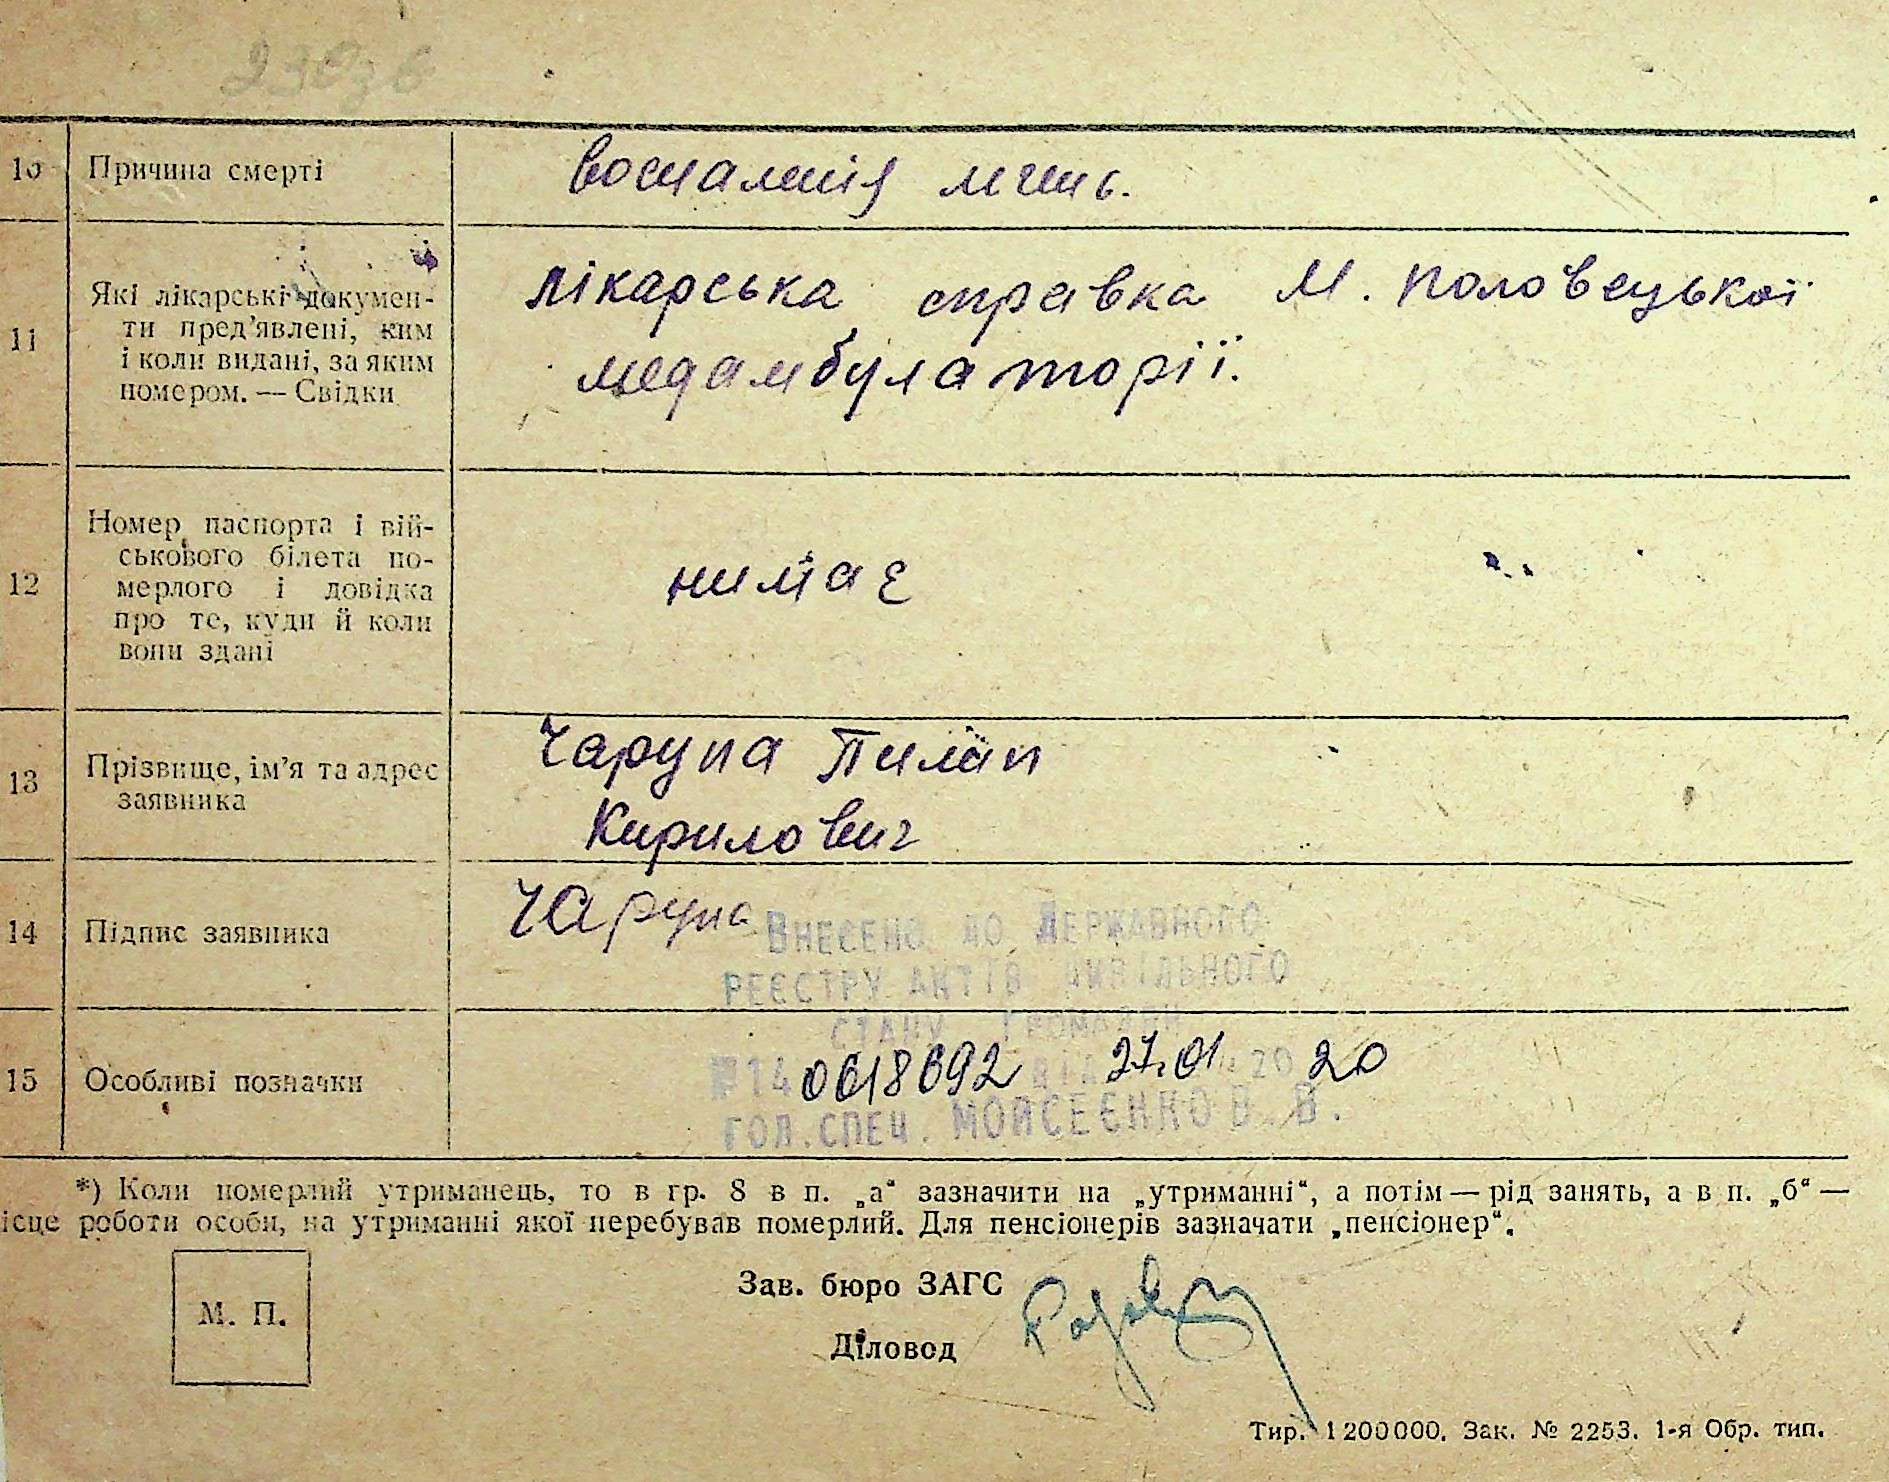 10 Причина смерті воспаленія легень.
11 Які лікарські докумен-
ти пред’явлені, ким
і коли видані, за яким
номером. — Свідки
лікарська справка М. Половецької
медамбулаторії.
12 Номер паспорта і вій-
ськового білета по-
мерлого і довідка
про те, куди й коли
вони здані
нимає
13 Прізвище, ім’я та адрес
заявника
Чарупа Пилип
Кирилович
14 Підпис заявника Чарупа
Внесено до Державного
реєстру актів цивільного
стану громадян
15 Особливі позначки
№ 14 0618692 від 27.01 20 20
гол. спец. Моисеєнко В. В.
*) Коли померлий утриманець, то в гр. 8 в п. „а“ зазначити на „утриманні“, а потім — рід занять, а в п. „б“ —
ісце роботи особи, на утриманні якої перебував померлий. Для пенсіонерів зазначати „пенсіонер“.
М. П.
Зав. бюро ЗАГС
Діловод
Тир. 1200000. Зак. № 2253. 1-я Обр. тип.